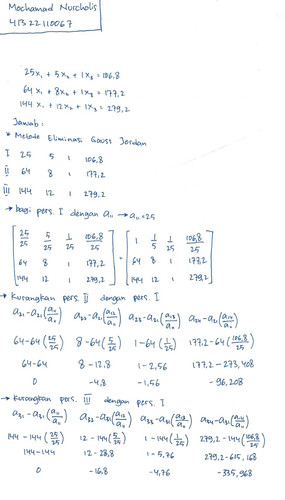 Mochamad Nurcholis
41322110067
25x₁ + 5x₂ + 1x₃ = 106,8
64x₁ + 8x₂ + 1x₃ = 177,2
144x₁ + 12x₂ + 1x₃ = 279,2
Jawab :
* Metode Eliminasi Gauss Jordan
I 25 5 1 106,8
II 64 8 1 177,2
III 144 12 1 279,2
→ bagi pers. I dengan a₁₁ → a₁₁ = 25
[25/25 5/25 1/25 106,8/25] = [1 1/5 1/25 106,8/25]
[64 8 1 177,2] [64 8 1 177,2]
[144 12 1 279,2] [144 12 1 279,2]
→ Kurangkan pers. II dengan pers. I
a₂₁-a₂₁(a₁₁/a₁₁) a₂₂-a₂₁(a₁₂/a₁₁) a₂₃-a₂₁(a₁₃/a₁₁) a₂₄-a₂₁(a₁₄/a₁₁)
64-64(25/25) 8-64(5/25) 1-64(1/25) 177,2-64(106,8/25)
64-64 8-12,8 1-2,56 177,2-273,408
0 -4,8 -1,56 -96,208
→ Kurangkan pers. III dengan pers. I
a₃₁-a₃₁(a₁₁/a₁₁) a₃₂-a₃₁(a₁₂/a₁₁) a₃₃-a₃₁(a₁₃/a₁₁) a₃₄-a₃₁(a₁₄/a₁₁)
144-144(25/25) 12-144(5/25) 1-144(1/25) 279,2-144(106,8/25)
144-144 12-28,8 1-5,76 279,2-615,168
0 -16,8 -4,76 -335,968